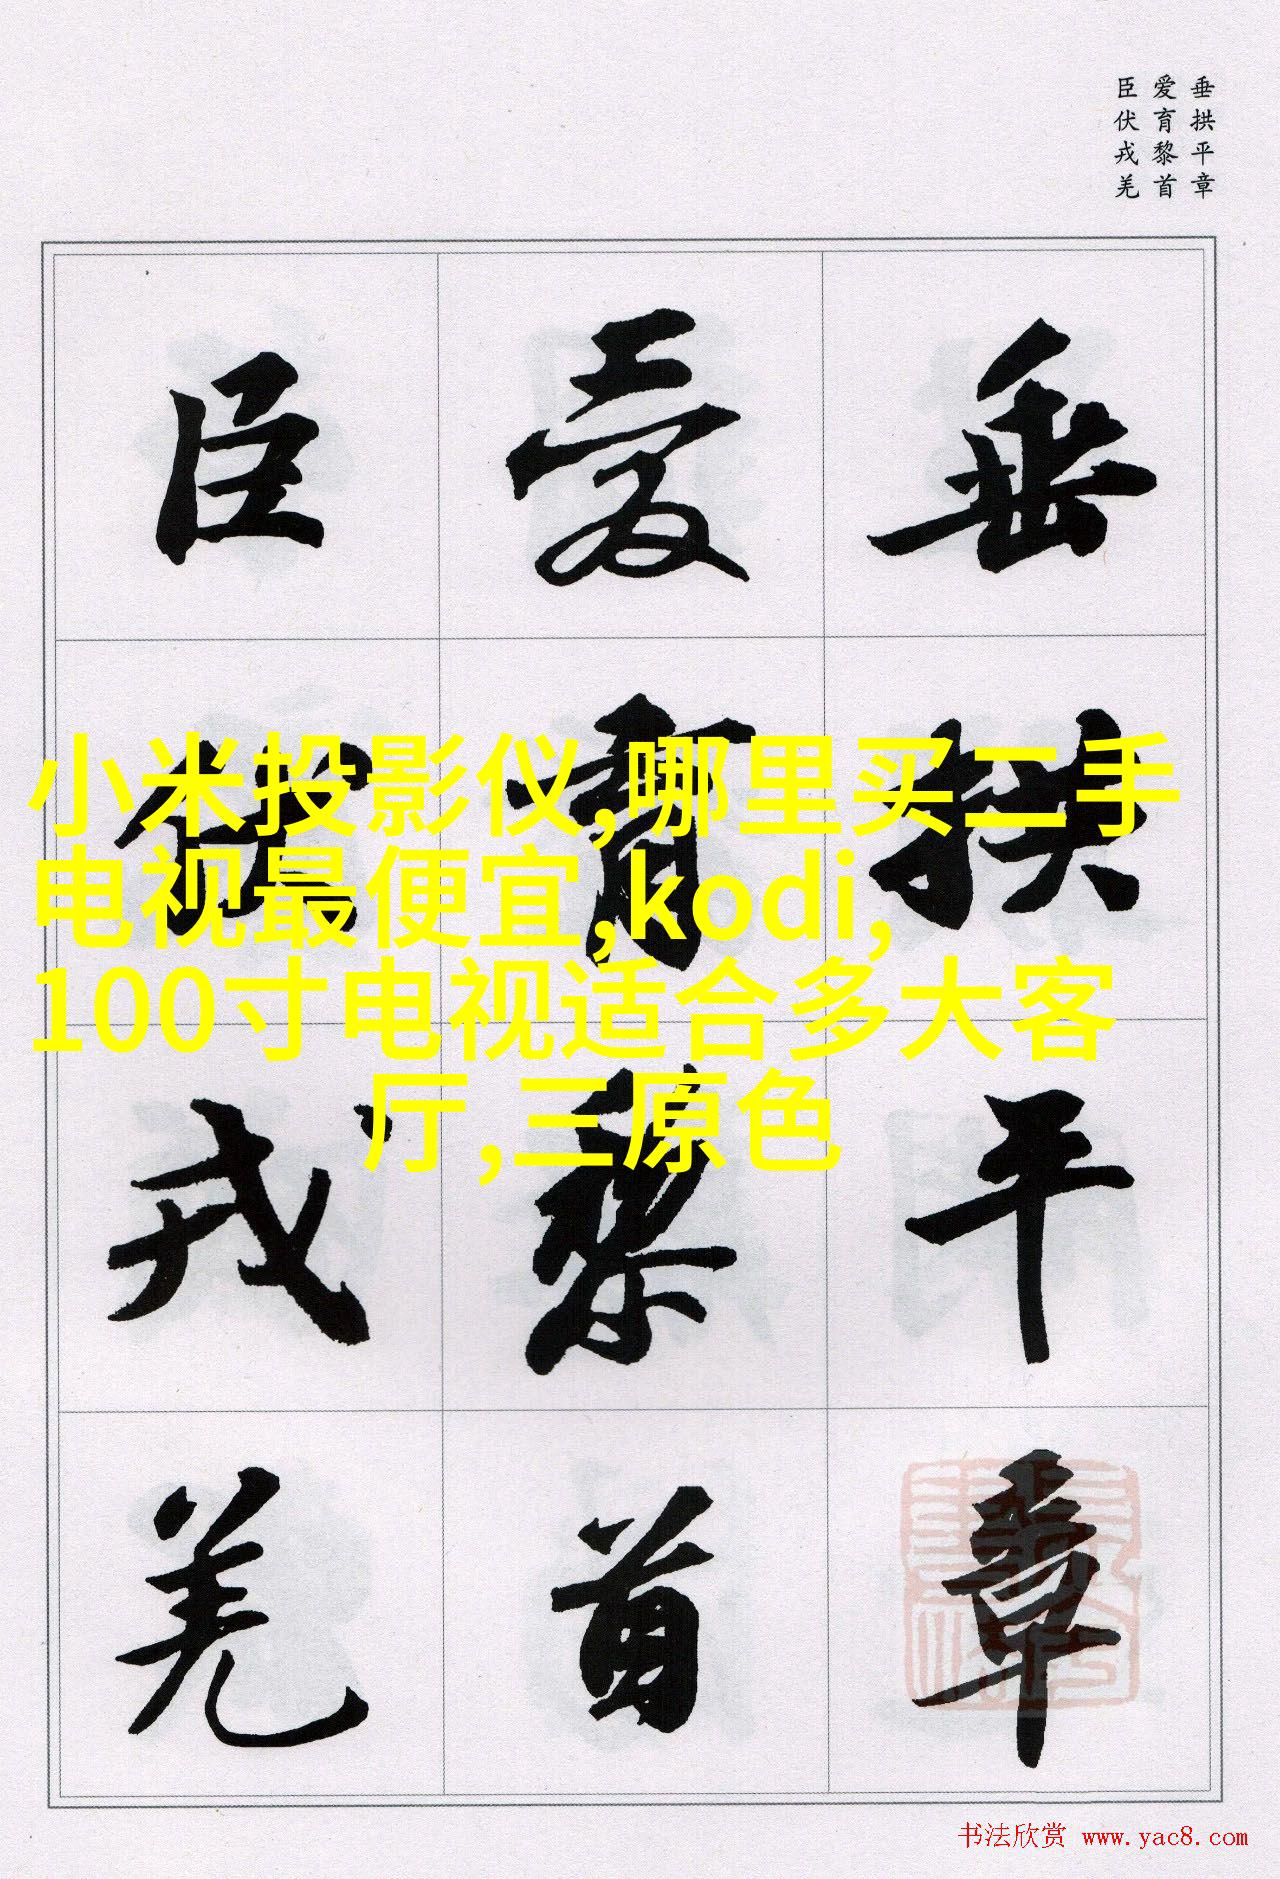 垂拱平章
爱育黎首
臣伏戎羌
垂拱平章
爱育黎首
臣伏戎羌
小米投影仪,哪里买二手
电视最便宜,kodi,
100寸电视适合多大客
厅,三原色
书法欣赏 www.yac8.com